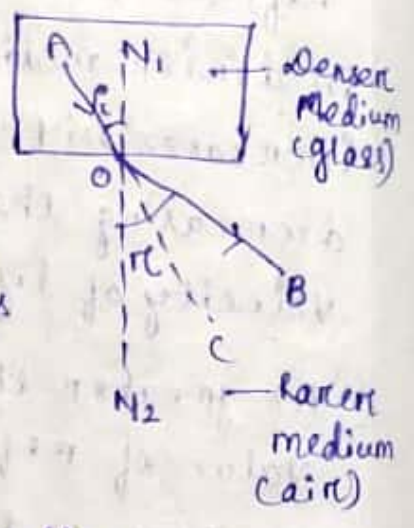 A N1
i
Denser
Medium
(glass)
O
r
B
C
N2
Rarer
medium
(air)